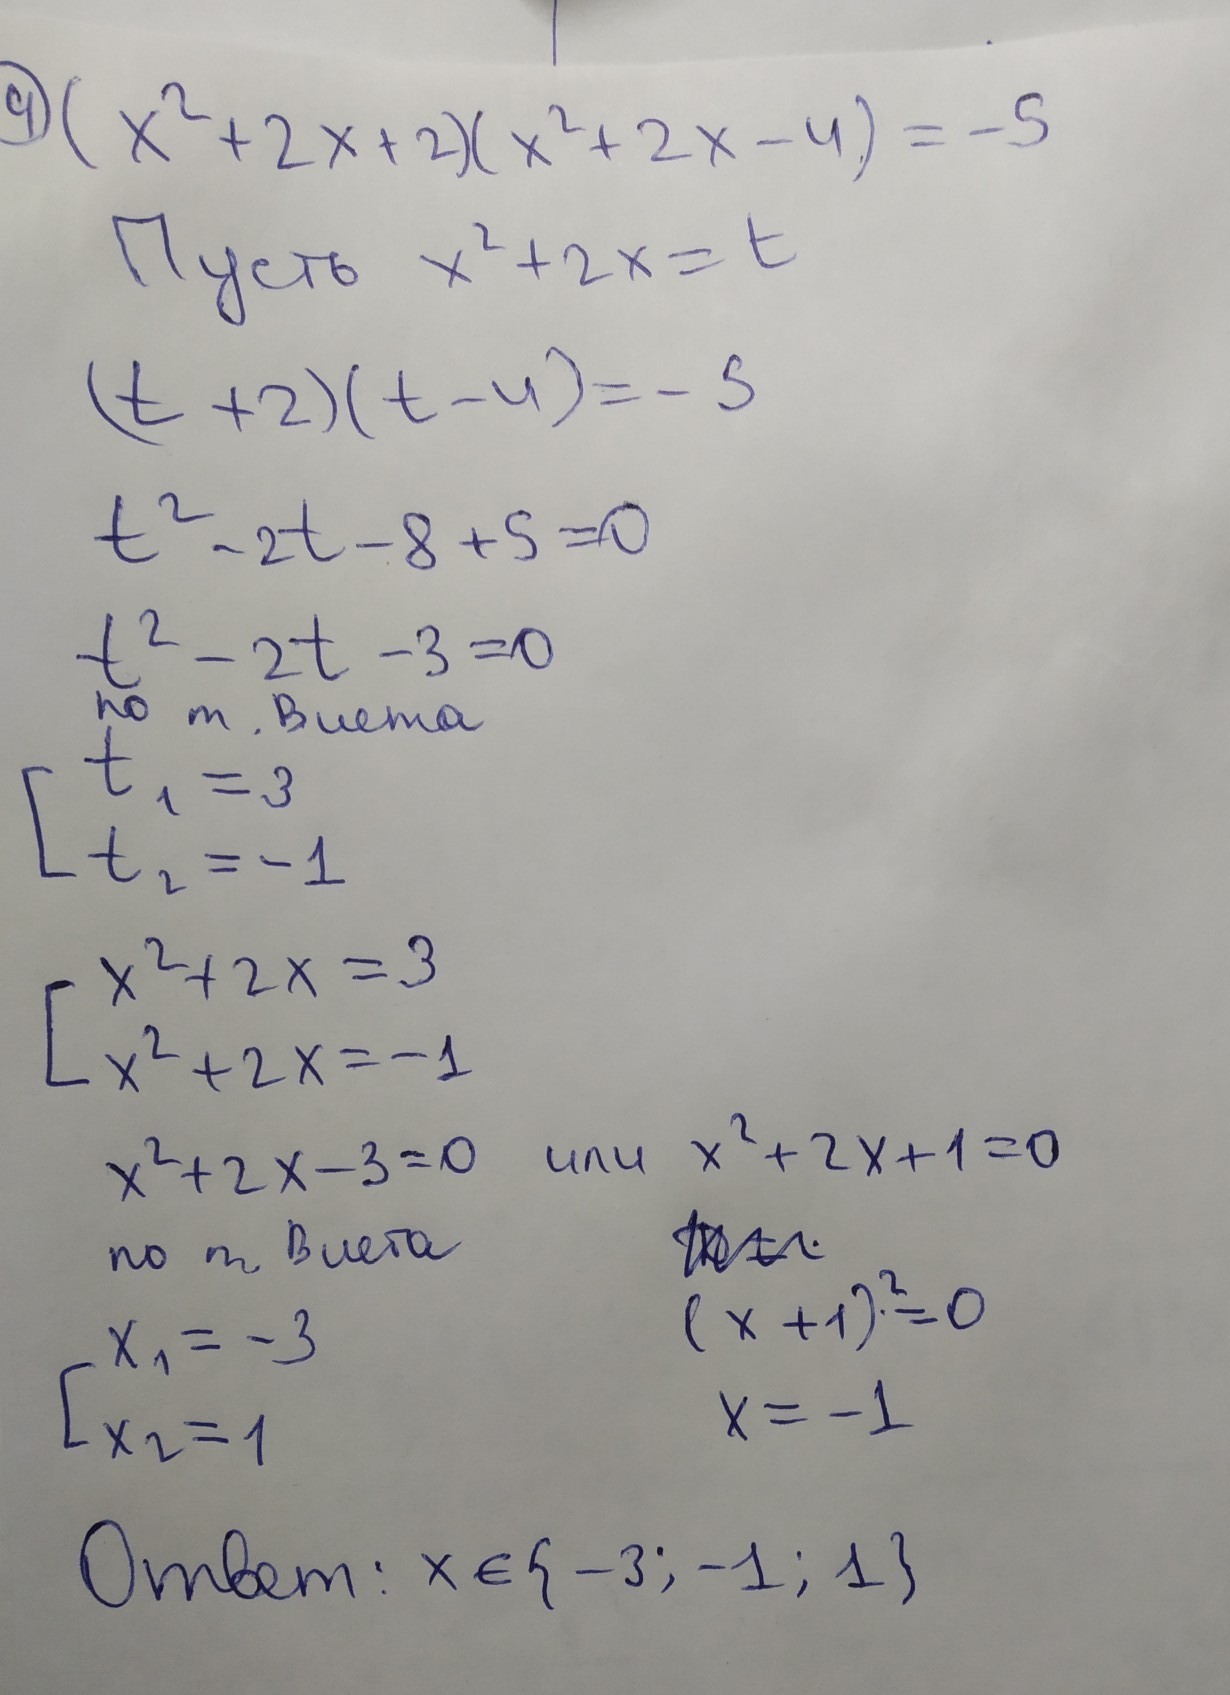 4) (x²+2x+2)(x²+2x-4)=-5
Пусть x²+2x=t
(t+2)(t-4)=-5
t²-2t-8+5=0
t²-2t-3=0
по т. Виета
t₁=3
t₂=-1
x²+2x=3
x²+2x=-1
x²+2x-3=0 или x²+2x+1=0
по т. Виета
(x+1)²=0
x₁=-3
x=-1
x₂=1
Ответ: x∈{-3;-1;1}